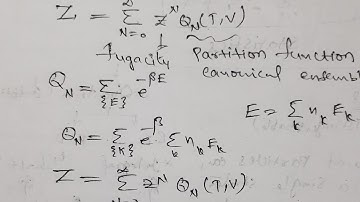 Z = ∑_{N=0}^{∞} z^N Q_N(T,V)
↓
fugacity partition function
canonical
Q_N = ∑_{{E}} e^{-βE}
E = ∑_k n_k E_k
Q_N = ∑_{{K}} e^{-β} ∑_k n_k E_k
Z = ∑^{∞} z^N Q_N(T,V)